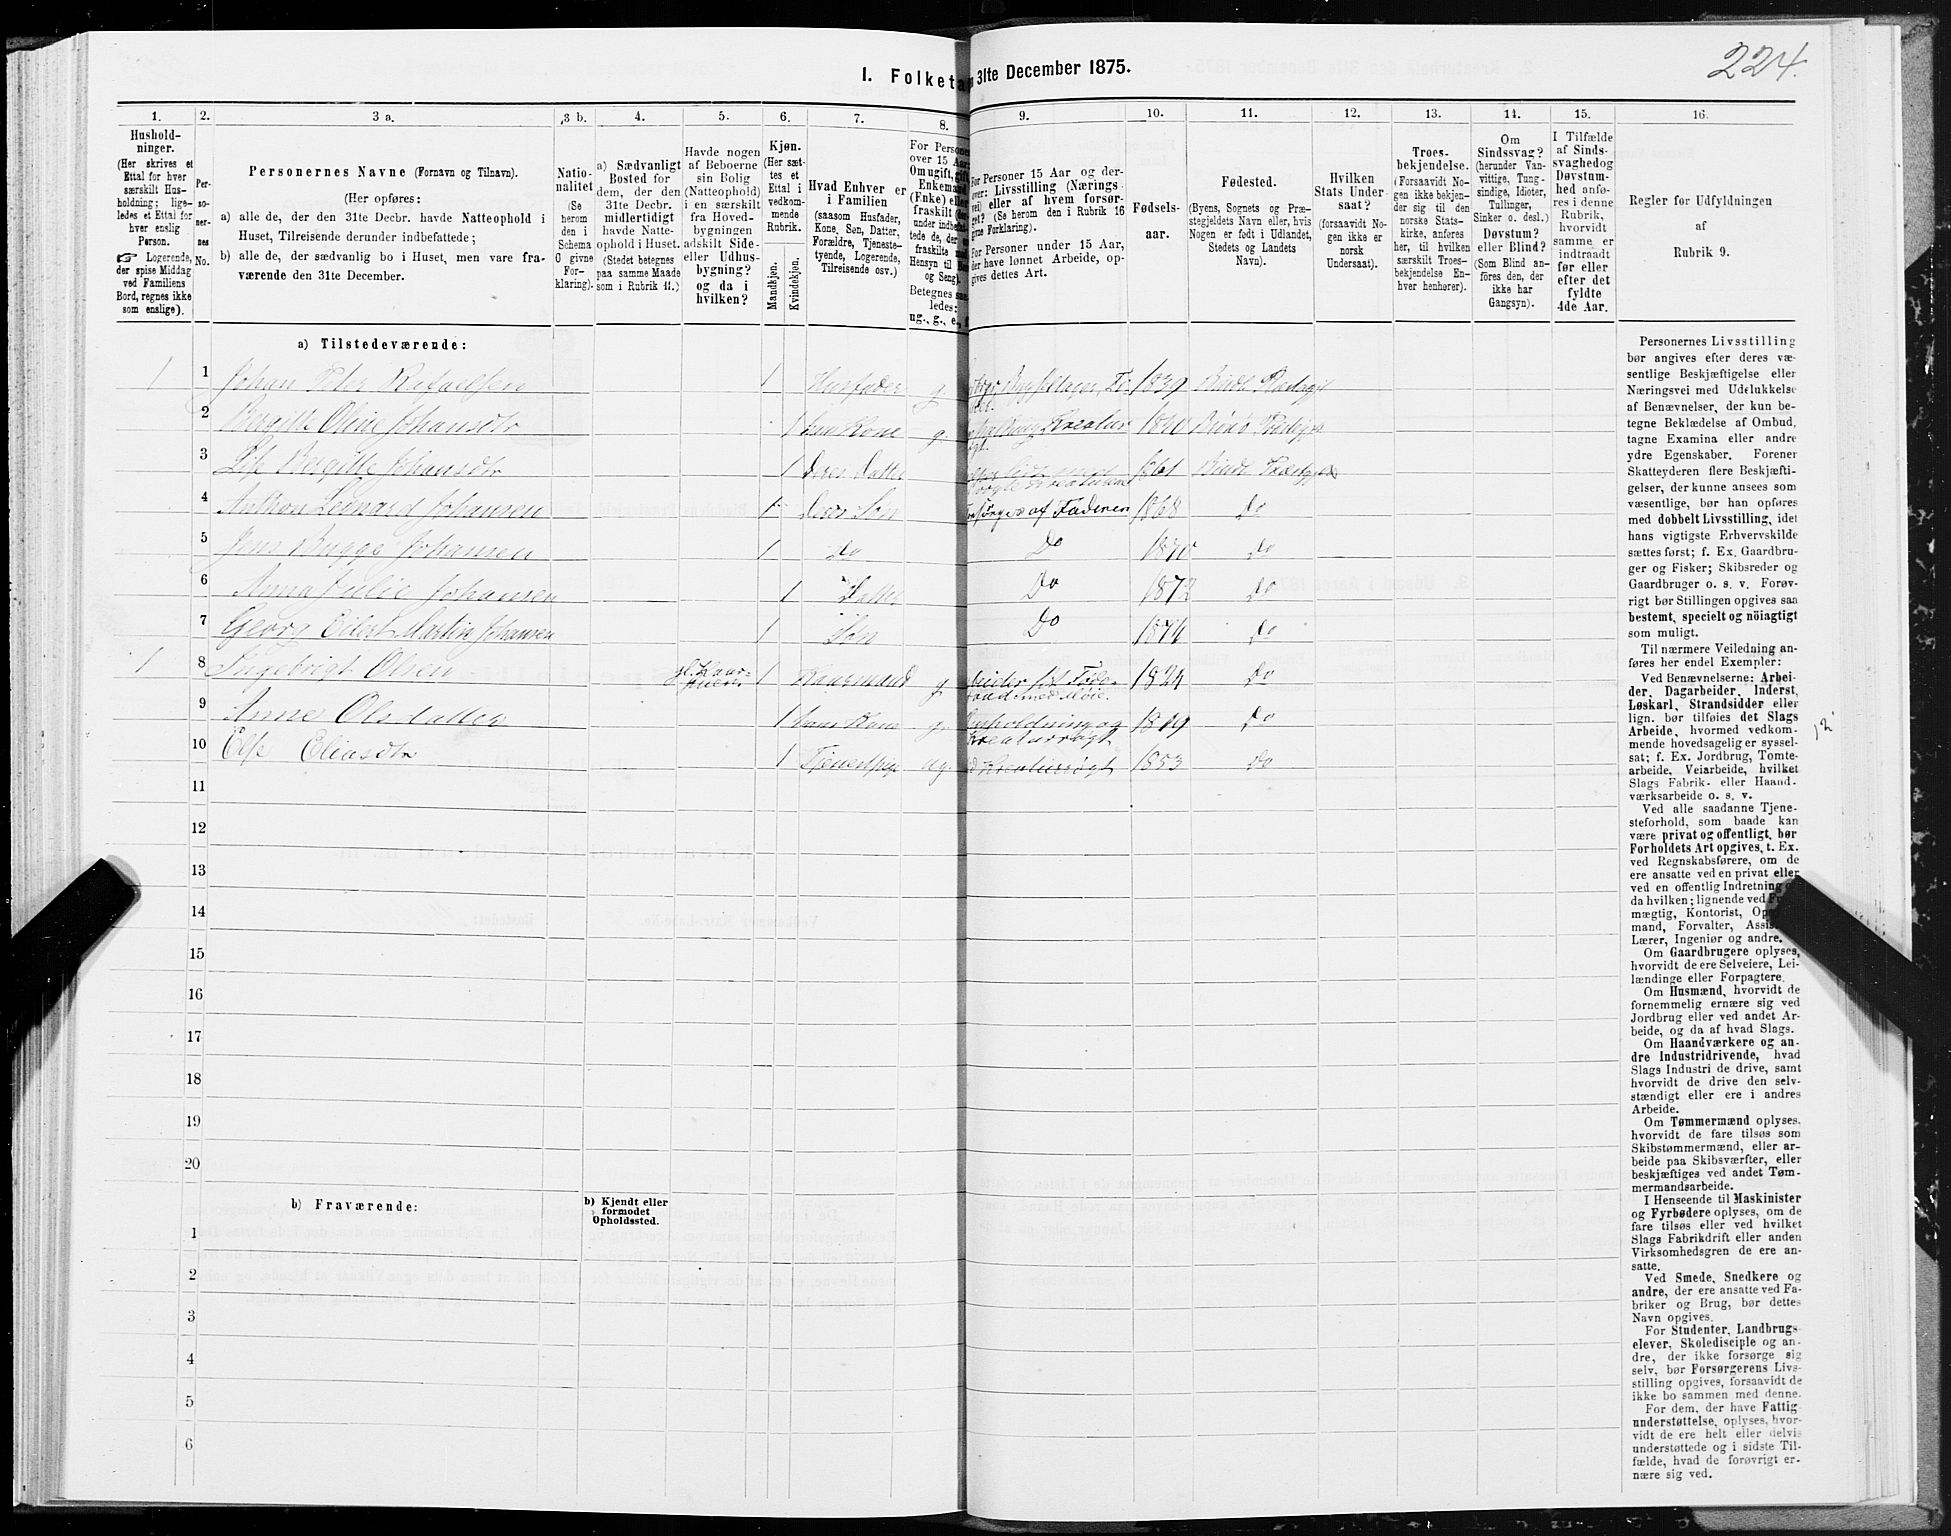 224.
I. Folketa 31te December 1875.
1. 2. 3 a. 3 b. 4. 5. 6. 7. 8. 9. 10. 11. 12. 13. 14. 15. 16.
Hushold-
ninger.
(Her skrives et
Ettal for hver
særskilt Hus-
holdning; lige-
ledes et Ettal for
hver enslig
Person.
☞ Logerende,
der spise Middag
ved Familiens
Bord, regnes ikke
som enslige).
Per-
so-
ner-
nes
No.
Personernes Navne (Fornavn og Tilnavn).
(Her opføres:
a) alle de, der den 31te Decbr. havde Natteophold i
Huset, Tilreisende derunder indbefattede;
b) alle de, der sædvanlig bo i Huset, men vare fra-
værende den 31te December.
Natio-
nalitet
(Se
herom
den i
Schema
O givne
For-
klaring).
a) Sædvanligt
Bosted for
dem, der den
31te Decbr.
midlertidigt
havde Natte-
ophold i Huset.
(Stedet betegnes
paa samme Maade
som i Rubrik 11.)
Havde nogen
af Beboerne
sin Bolig
(Natteophold)
i en særskilt
fra Hoved-
bygningen
adskilt Side-
eller Udhus-
bygning?
og da i
hvilken?
Kjøn.
(Her sæt-
tes et
Ettal i
vedkom-
mende
Rubrik.
Mandkjøn.
Kvindekjøn.
Hvad Enhver er
i Familien
(saasom Husfader,
Kone, Søn, Datter,
Forældre, Tjeneste-
tyende, Logerende,
Tilreisende osv.)
For Persone
over 15 Aar
Om ugift, gift
Enkemand
(Enke) elle
fraskilt
Betegnes saa
ledes:
ug., g., e.,
For Personer 15 Aar og der-
over: Livsstilling (Nærings-
vei) eller af hvem forsør-
get? (Se herom den i Rubrik 16
givne Forklaring).
For Personer under 15 Aar,
der have lønnet Arbeide, op-
gives dettes Art.
Fødsels-
aar.
Fødested.
(Byens, Sognets og Præ-
stegjeldets Navn eller, hvis
Nogen er født i Udlandet,
Stedets og Landets
Navn).
Hvilken
Stats Under-
saat?
(forsaavidt No-
gen ikke er
norsk
Undersaat).
Troes-
bekjendelse.
(Forsaavidt No-
gen ikke bekjen-
der sig til den
norske Stats-
kirke, anføres
her, til hvilken
særskilt Troes-
bekjendelse En-
hver henhører).
Om
Sindssvag?
(herunder Van-
vittige, Tung-
sindige, Idioter,
Tullinger,
Sinker o. desl.)
Døvstum?
eller Blind?
(Som Blind an-
føres den, der
ikke har
Gangsyn).
I Tilfælde
af Sinds-
svaghed og
Døvstum-
hed anfø-
res i denne
Rubrik,
hvorvidt
samme er
indtraadt
før eller
efter det
fyldte
4de Aar.
Regler for Udfyldningen
af
Rubrik 9.
a) Tilstedeværende:
1 1 Johan Peter Rafaelsen 1 Husfader g. 1839 Bindl Præstegjl
2 Bergitte Oline Johansdtr 1 hans Kone g. Kreatur 1840 Præstegj
3 Else Bergitte Johansdtr 1 Deres Datter 1861 Bindl Præstegjel
4 Anthon Leonard Johansen 1 Deres Søn Forsørges af Faderen 1868 Do
5 Jens Bugge Johansen 1 Do Do 1870 Do
6 Anna Julie Johansen 1 Datter Do 1872 Do
7 Georg Eilert Martin Johansen 1 Søn Do 1874 Do
1 8 Ingebrigt Olsen 1 Kaarmand g. 1824 Do
9 Anne Olsdatter 1 hans Kone g. Husholdning og Kreaturrøgt 1819 Do
10 Else Eliasdtr 1 ug. Kreaturrøgt 1853 Do
11
12
13
14
15
16
17
18
19
20
b) Fraværende:
b) Kjendt eller
formodet
Opholdssted.
1
2
3
4
5
6
Personernes Livsstilling
bør angives efter deres væ-
sentlige Beskjæftigelse eller
Næringsvei med Udelukkelse
af Benævnelser, der kun be-
tegne Beklædelse af Ombud,
tagne Examina eller andre
ydre Egenskaber. Forener
Skatteyderen flere Beskjæfti-
gelser, der kunne ansees som
væsentlige, bør han opføres
med dobbelt Livsstilling, idet
hans vigtigste Erhvervskilde
sættes først; f. Ex. Gaardbru-
ger og Fisker; Skibsreder og
Gaardbruger o. s. v. Forøv-
rigt bør Stillingen opgives saa
bestemt, specielt og nöiagtigt
som muligt.
Til nærmere Veiledning an-
føres her endel Exempler:
Ved Benævnelserne: Arbei-
der, Dagarbeider, Inderst,
Løskarl, Strandsidder eller
lign. bør tilføies det Slags
Arbeide, hvormed vedkom-
mende hovedsagelig er syssel-
sat; f. Ex. Jordbrug, Tomte-
arbeide, Veiarbeide, hvilket
Slags Fabrik- eller Haand-
værksarbeide o. s. v.
Ved alle saadanne Tjene-
steforhold, som baade kan
være privat og offentligt, bør
Forholdets Art opgives, t. Ex.
ved Regnskabsførere, om de
ere ansatte ved en privat eller
ved en offentlig Indretning
da hvilken; lignende ved
mægtig, Kontorist,
mand, Forvalter,
Lærer, Ingeniør og andre.
Om Gaardbrugere oplyses,
hvorvidt de ere Selveiere, Lei-
lændinge eller Forpagtere.
Om Husmænd, hvorvidt de
fornemmelig ernære sig ved
Jordbrug eller ved andet Ar-
beide, og da af hvad Slags.
Om Haandværkere og an-
dre Industridrivende, hvad
Slags Industri de drive, samt
hvorvidt de drive den selv-
stændigt eller ere i andres
Arbeide.
Om Tømmermænd oplyses,
hvorvidt de fare tilsøs som
Skibstømmermænd, eller ar-
beide paa Skibsværfter, eller
beskjæftiges ved andet Tøm-
mermandsarbeide.
I Henseende til Maskinister
og Fyrbødere oplyses, om de
fare tilsøs eller ved hvilket
Slags Fabrikdrift eller anden
Virksomhedsgren de ere an-
satte.
Ved Smede, Snedkere og
andre, der ere ansatte ved Fa-
briker og Brug, bør dettes
Navn opgives.
For Studenter, Landbrugs-
elever, Skoledisciple og an-
dre, der ikke forsørge sig
selv, bør Forsørgerens Livs-
stilling opgives, forsaavidt de
ikke bo sammen med denne.
For dem, der have Fattig-
understøttelse, oplyses, hvor-
vidt de ere helt eller delvis
understøttede og i sidste Til-
fælde, hvad de forøvrigt er-
nære sig ved.